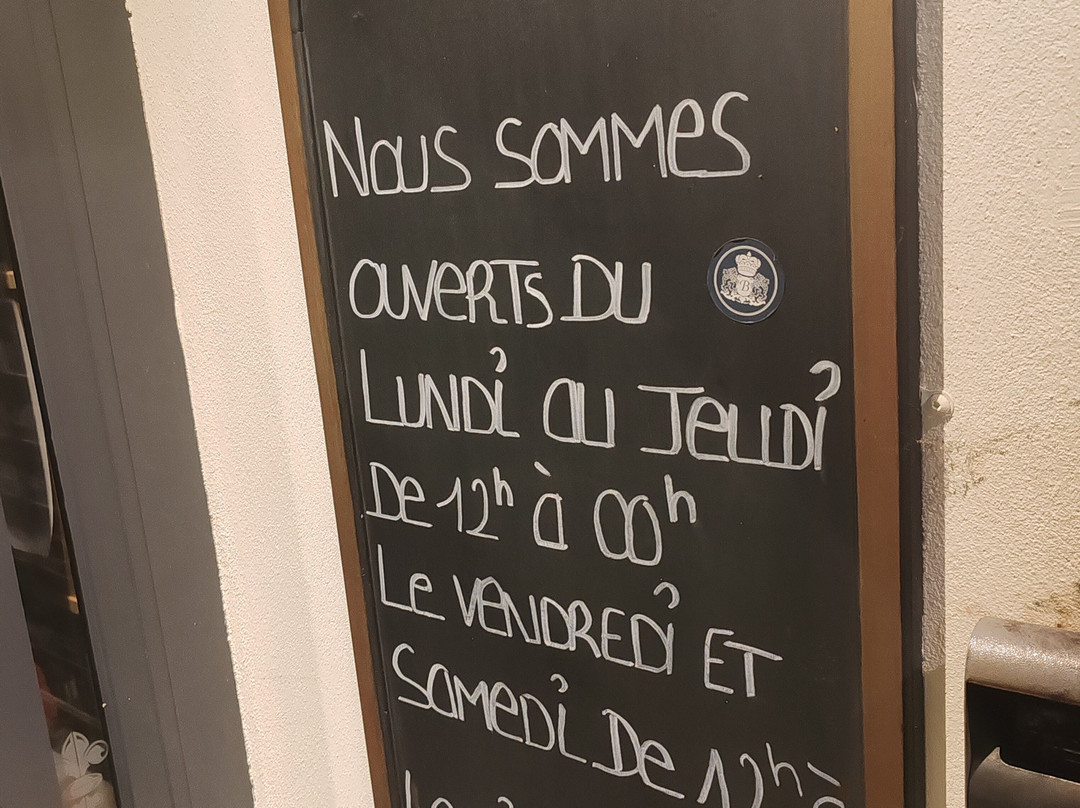 Nous sommes
ouverts du
Lundi au Jeudi
De 12h à 00h
Le vendredi et
Samedi de 12h à
B